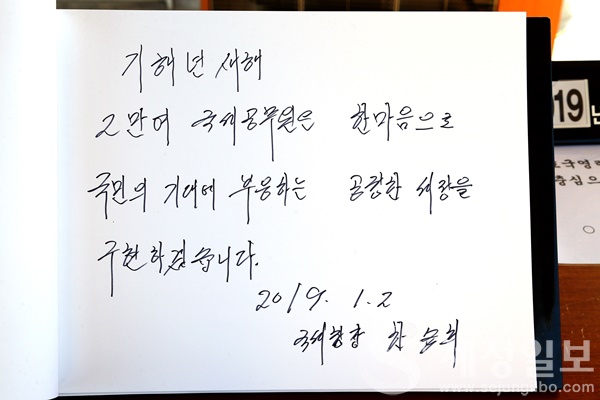 기해년 새해
2만여 국세공무원은 한마음으로
국민의 기대에 부응하는 공정한 세정을
구현하겠습니다.
2019. 1. 2
국세청장 한승희
19년
국영령
중심으
세정일보
www.sejungilbo.com